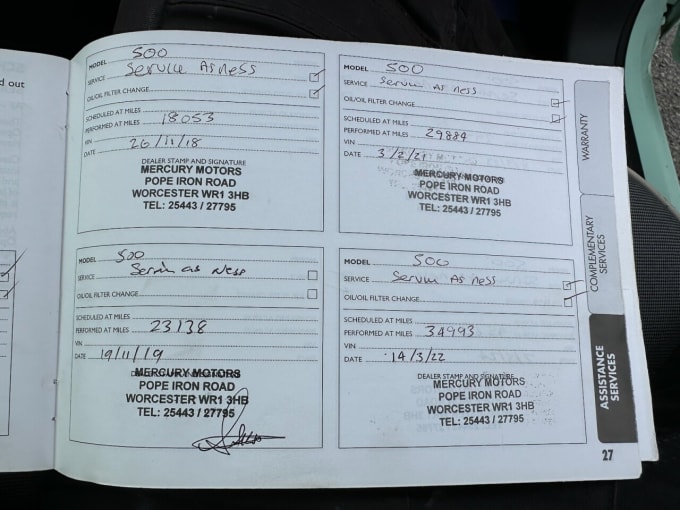 d out
MODEL 500
SERVICE Service As ness
OIL/OIL FILTER CHANGE
SCHEDULED AT MILES
PERFORMED AT MILES 18053
VIN
DATE 26/11/18
DEALER STAMP AND SIGNATURE
MERCURY MOTORS
POPE IRON ROAD
WORCESTER WR1 3HB
TEL: 25443 / 27795
MODEL 500
SERVICE Service As ness
OIL/OIL FILTER CHANGE
SCHEDULED AT MILES
PERFORMED AT MILES 29884
VIN
DATE 3/2/21
MERCURY MOTORS
POPE IRON ROAD
WORCESTER WR1 3HB
TEL: 25443 / 27795
MODEL 500
SERVICE Service as ness
OIL/OIL FILTER CHANGE
SCHEDULED AT MILES
PERFORMED AT MILES 23138
VIN
DATE 19/11/19
MERCURY MOTORS
POPE IRON ROAD
WORCESTER WR1 3HB
TEL: 25443 / 27795
MODEL 500
SERVICE Service As ness
OIL/OIL FILTER CHANGE
SCHEDULED AT MILES
PERFORMED AT MILES 34993
VIN
DATE 14/3/22
DEALER STAMP AND SIGNATURE
MERCURY MOTORS
POPE IRON ROAD
WORCESTER WR1 3HB
TEL: 25443 / 27795
WARRANTY
COMPLEMENTARY
SERVICES
ASSISTANCE
SERVICES
27